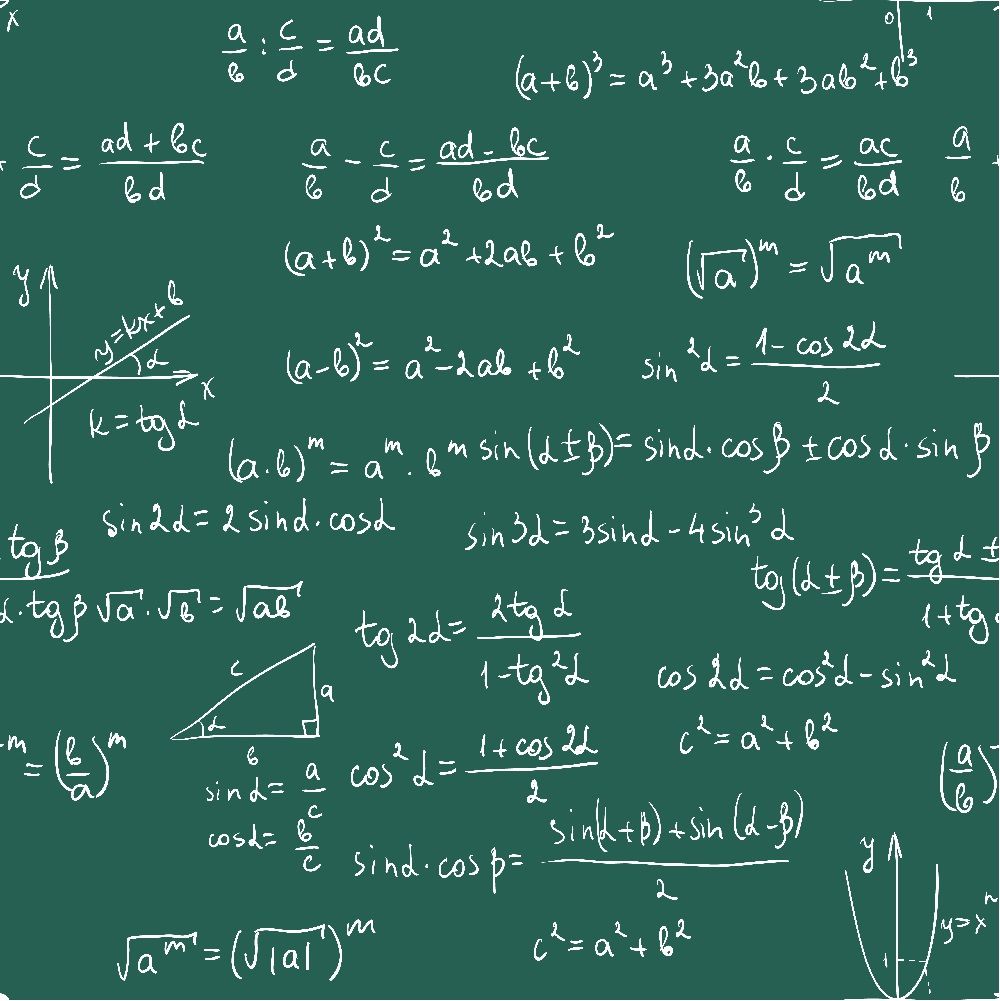 x
0 1
a/b : c/d = ad/bc
(a+b)³ = a³ + 3a²b + 3ab² + b³
c/d = (ad + bc)/bd
a/b - c/d = (ad - bc)/bd
a/b · c/d = ac/bd
a/b
(a+b)² = a² + 2ab + b²
(√a)ᵐ = √aᵐ
y
y = kx + b
α
x
k = tg α
(a-b)² = a² - 2ab + b²
sin²α = (1 - cos 2α)/2
(a·b)ᵐ = aᵐ · bᵐ
sin(α ± β) = sinα · cosβ ± cosα · sin β
sin2α = 2 sinα · cosα
sin3α = 3sinα - 4sin³α
tg β
α · tg β
√a · √b = √ab
tg(α ± β) = (tg α ±)/(1 + tg
tg 2α = (2tg α)/(1 - tg²α)
cos 2α = cos²α - sin²α
c
a
α
b
c² = a² + b²
m = (b/a)ᵐ
(a/b)
sinα = a/c
cos²α = (1 + cos 2α)/2
cosα = b/c
sinα · cosβ = (sin(α+β) + sin(α-β))/2
y
y = x
1
√aᵐ = (√|a|)ᵐ
c² = a² + b²